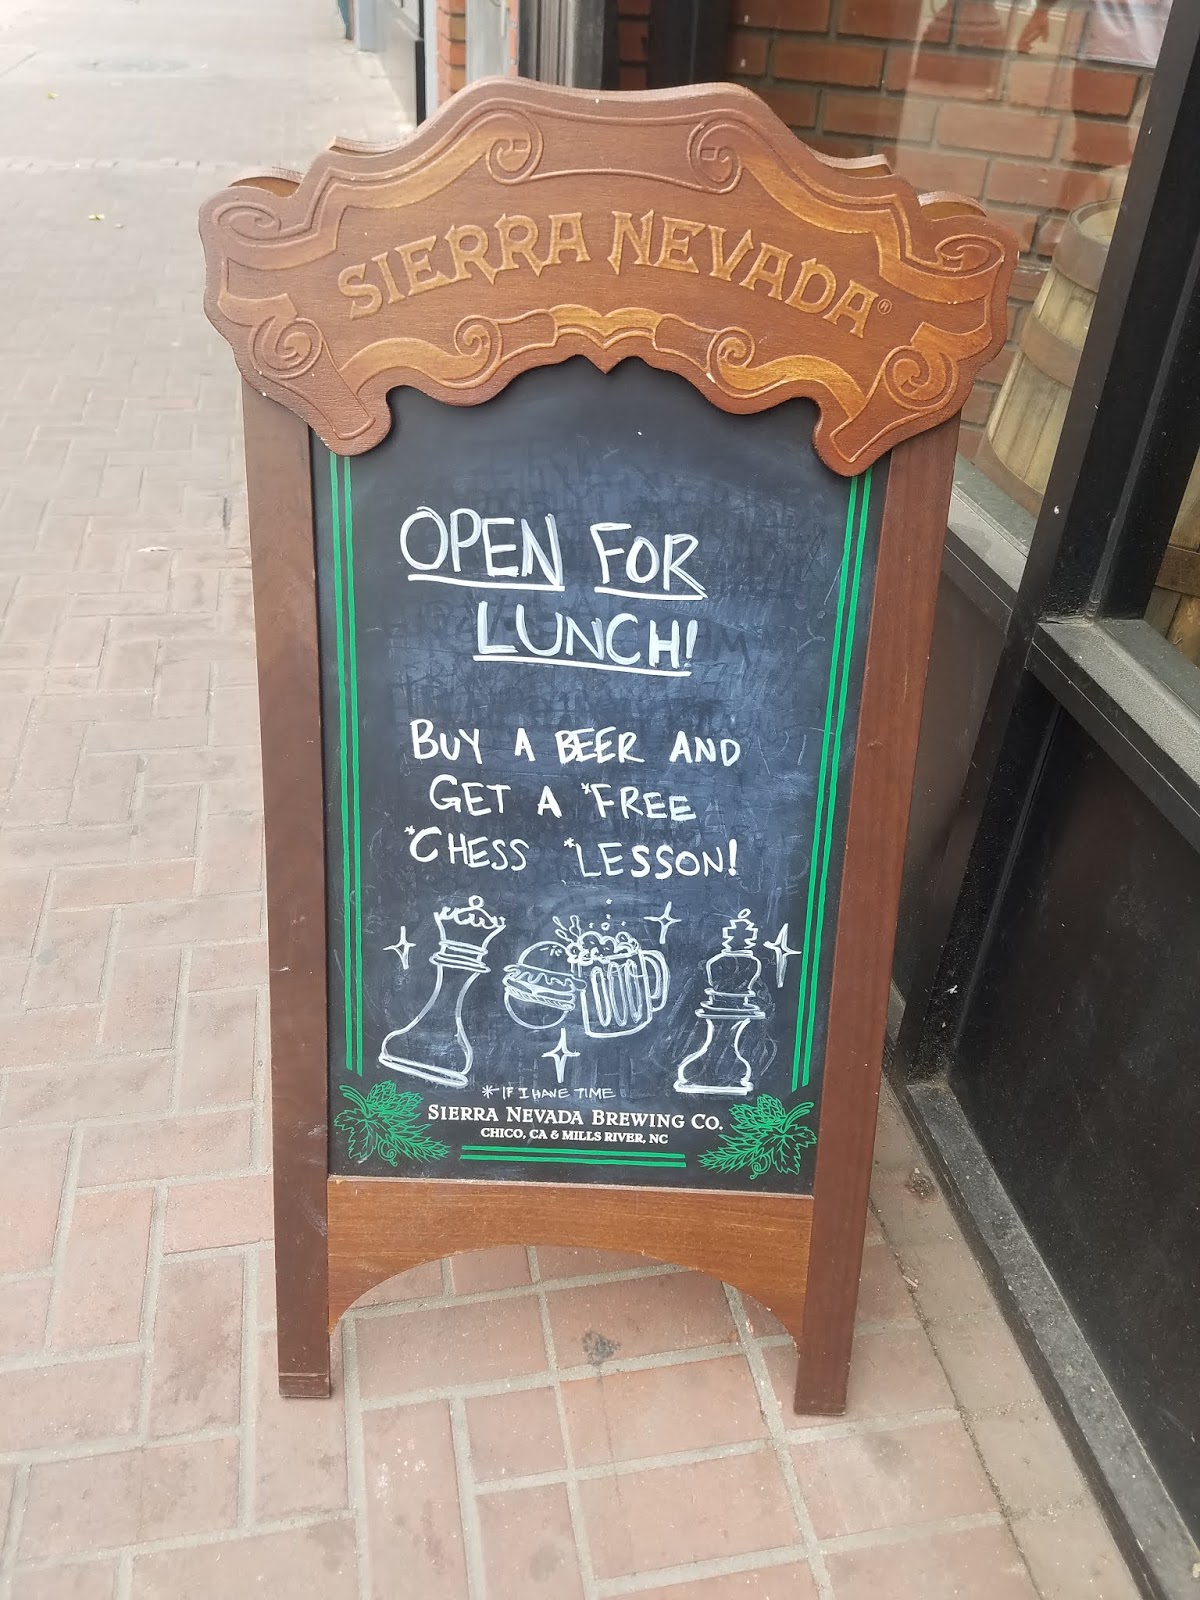 SIERRA NEVADA®
OPEN FOR
LUNCH!
BUY A BEER AND
GET A *FREE
*CHESS *LESSON!
* IF I HAVE TIME
SIERRA NEVADA BREWING CO.
CHICO, CA & MILLS RIVER, NC